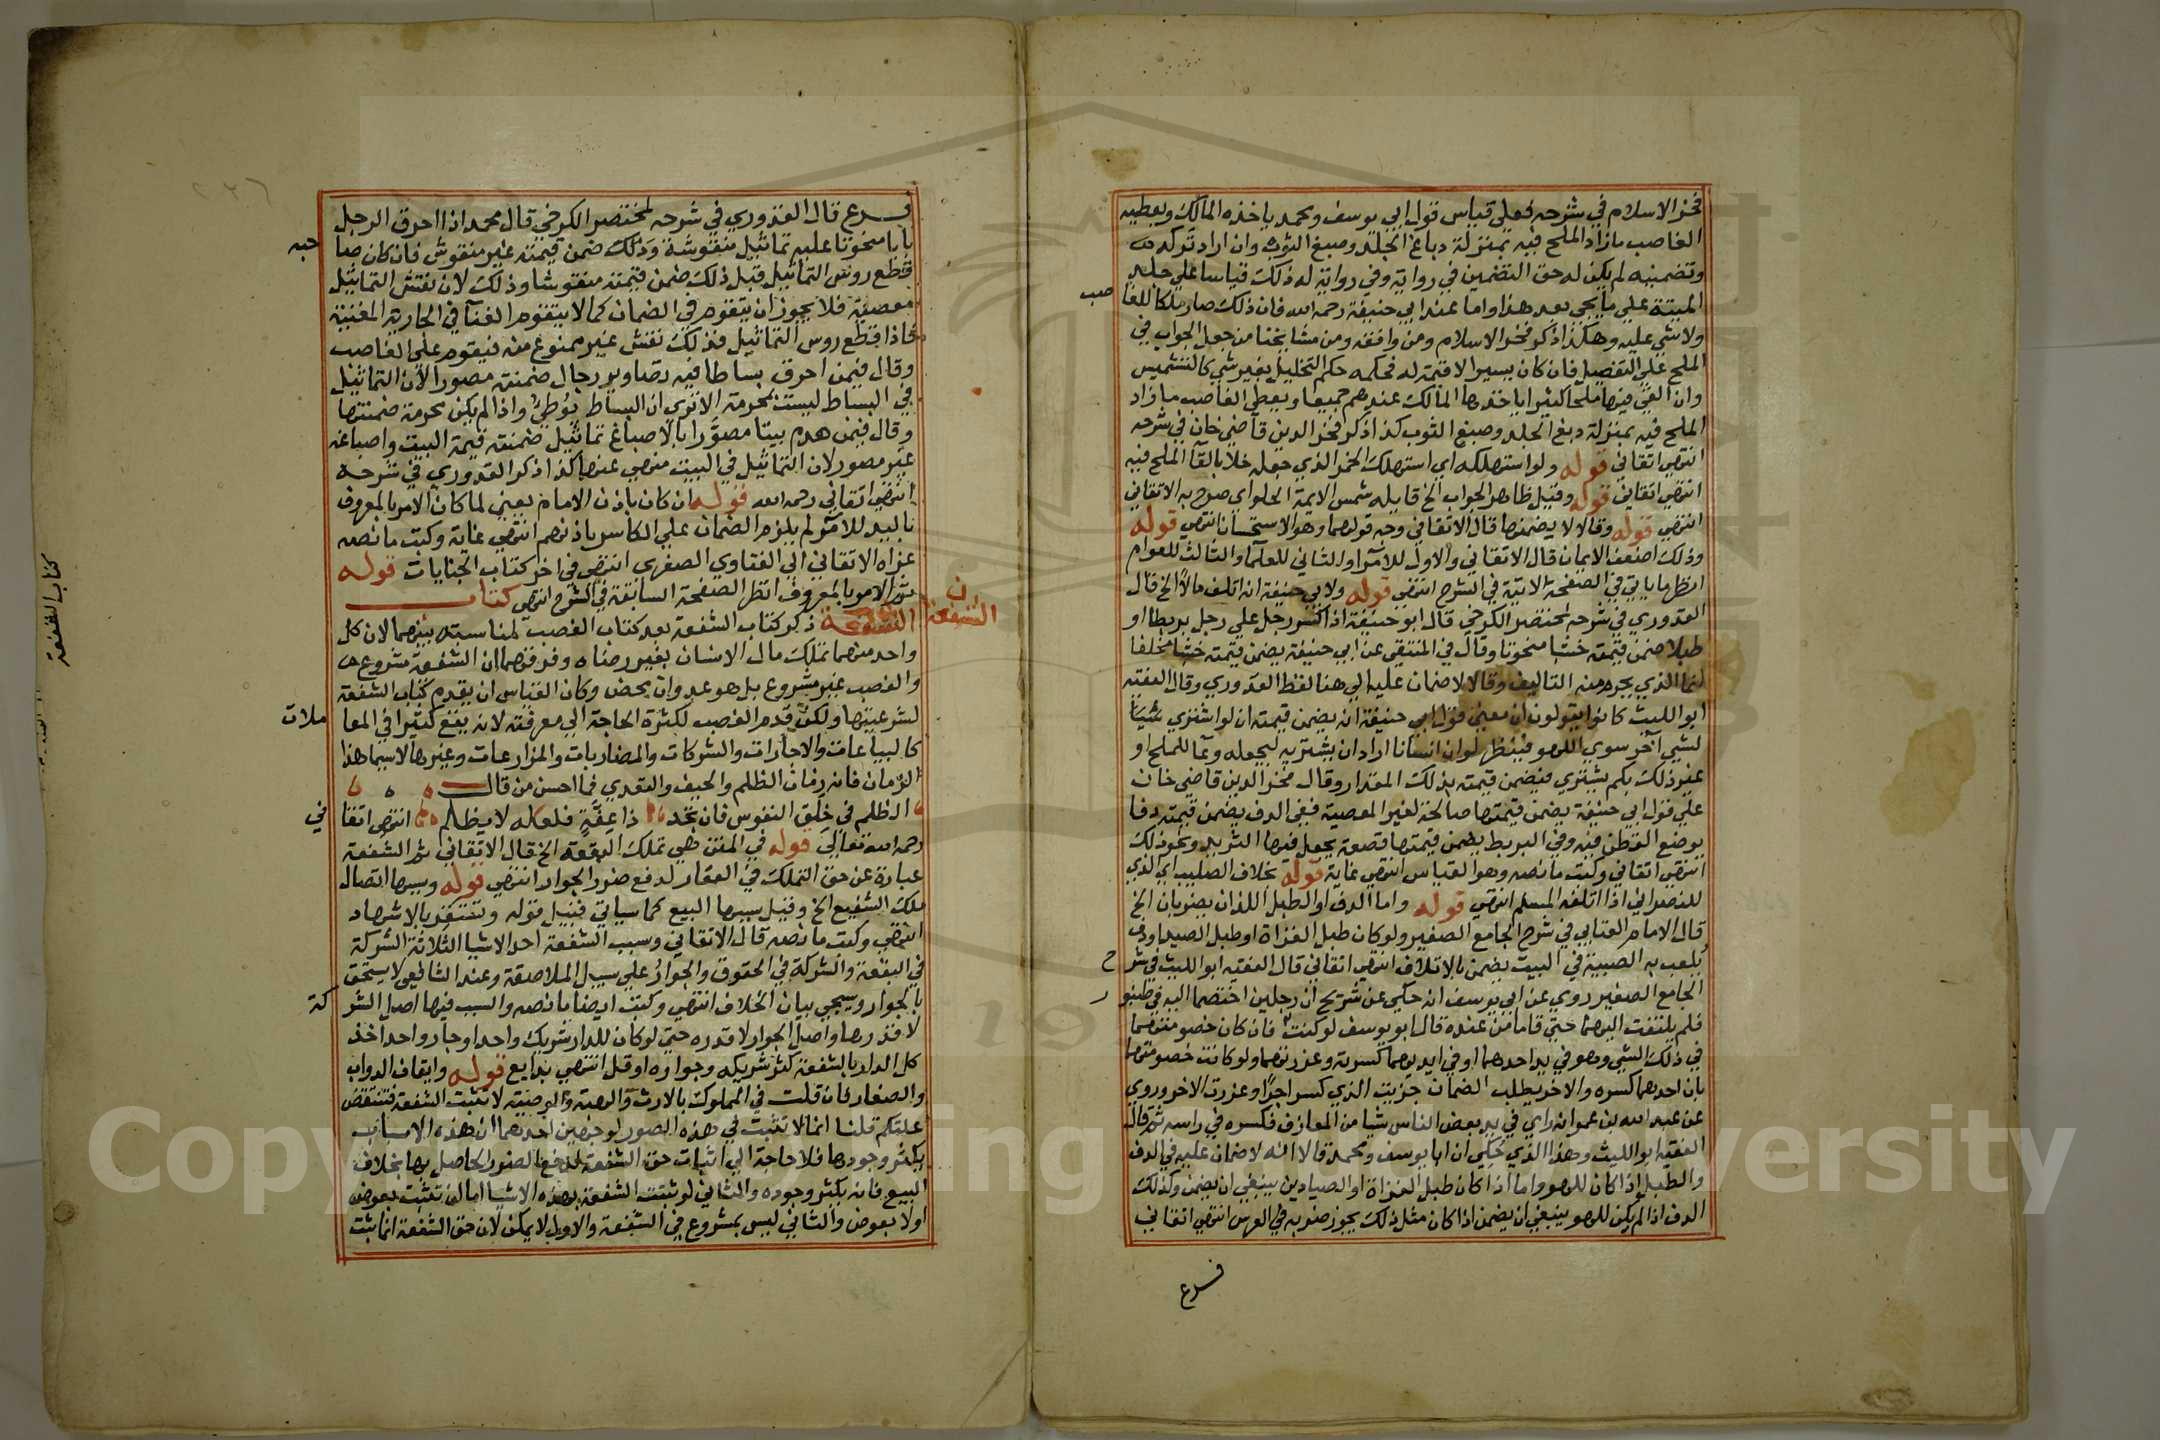 فخر الاسلام في شرحه فعلي قياس قول ابي يوسف ومحمد ياخذه المالك ويعطيه
الغاصب مازاد الملح فيه بمنزلة دباغ الجلد وصبغ الثوب وان اراد تركه
وتضمينه لم يكن له حق التضمين في رواية وفي رواية له ذلك قياسا علي جلد
الميتة علي ما يجي بعد هذا واما عند ابي حنيفة رحمه الله فان ذلك صار ملكا للغا
صب
ولاشي عليه وهكذا ذكر فخر الاسلام ومن وافقه ومن مشايخنا من جعل الجواب في
الملح علي التفصيل فان كان يسيرا لاقيمة له فحكمه حكم التخليل بغير شي كالتشميس
وان القي فيها ملحا كثيرا ياخذها المالك عندهم جميعا ويعطي الغاصب مازاد
الملح فيه بمنزلة دبغ الجلد وصبغ الثوب كذا ذكر فخر الدين قاضي خان في شرحه
انتهي اتقاني قوله ولو استهلكه اي استهلك الخمر الذي جعله خلا بالقا الملح فيه
انتهي اتقاني قوله وقيل ظاهر الجواب الخ قايله شمس الايمة الحلواي صرح به الاتقاني
انتهي قوله وقالا لا يضمنها قال الاتقاني وجه قولهما وهو الاستحسان انتهي قوله
وذلك اضعف الايمان قال الاتقاني والاول للامرا والثاني للعلما والثالث للعوام
انظر ما ياتي في الصفحة الاتية في الشرح انتهي قوله ولابي حنيفة انه اتلف مالا الخ قال
القدوري في شرحه لمختصر الكرخي قال ابو حنيفة اذا كسر رجل علي رجل بربطا او
طبلا ضمن قيمته خشبا منحوتا وقال في المنتقي عن ابي حنيفة يضمن قيمته خشبا مخلفا
انما الذي يحرم منه التاليف وقالا لاضمان عليه الي هنا لفظ القدوري وقال الفقيه
ابو الليث كانوا يقولون ان معني قول ابي حنيفة انه يضمن قيمته ان لو اشتري شيا
لشي آخر سوي اللهو فينظر لو ان انسانا اراد ان يشتريه ليجعله وعا للملح او
غير ذلك بكم يشتري فيضمن قيمته بذلك المقدار وقال فخر الدين قاضي خان
علي قول ابي حنيفة يضمن قيمتها صالحة لغير المعصية ففي الدف يضمن قيمته دفا
يوضع القطن فيه وفي البربط يضمن قيمتها قصعة يجعل فيها الثريد ونحو ذلك
انتهي اتقاني وكتب مانصه وهو القياس انتهي غاية قوله بخلاف الصليب اي الذي
للنصراني اذا اتلفه المسلم انتهي قوله واما الدف او الطبل اللذان يضربان الخ
قال الامام العتابي في شرح الجامع الصغير ولو كان طبل الغزاة او طبل الصيد اودف
يلعب به الصبية في البيت يضمن بالاتلاف انتهي اتقاني قال الفقيه ابو الليث في شر
ح
الجامع الصغير روي عن ابي يوسف انه حكي عن شريح ان رجلين اختصما اليه في طنبو
ر
فلم يلتفت اليهما حتي قاما من عنده قال ابو يوسف لو كنت فان كان خصومتهما
في ذلك الشي وهو في يد احدهما او في ايديهما كسرته وعزرتهما ولو كانت خصومتهما
بان احدهما كسره والاخر يطلب الضمان جزيت الذي كسر اجرا وعزرت الاخر وروي
عن عبد الله بن عمر انه راي في يد بعض الناس شيا من المعازف فكسره في راسه ثم قال
الفقيه ابو الليث وهذا الذي حكي ان ابا يوسف ومحمد قالا انه لاضمان عليه في الدف
والطبل اذا كان للهو واما اذا كان طبل الغزاة او الصيادين ينبغي ان يضمن وكذلك
الدف اذا لم يكن للهو ينبغي ان يضمن اذا كان مثل ذلك يجوز ضربه في العرس انتهي اتقاني
فرع
فرع قال القدوري في شرحه لمختصر الكرخي قال محمد اذا احرق الرجل
بابا منحوتا عليه تماثيل منقوشة وذلك ضمن قيمته غير منقوش فان كان صا
حبه
قطع روس التماثيل قبل ذلك ضمن قيمته منقوشا وذلك لان نقش التماثيل
معصية فلا يجوز ان يتقوم في الضمان كما لا يتقوم الغنا في الجارية المغنية
فاذا قطع روس التماثيل فذلك نقش غير ممنوع منه فيقوم علي الغاصب
وقال فيمن احرق بساطا فيه تصاوير رجال ضمنته مصورا لان التماثيل
في البساط ليست بمحرمة الا تري ان البساط يوطي واذا لم يكن محرمة ضمنتها
وقال فيمن هدم بيتا مصورا بالاصباغ تماثيل ضمنته قيمة البيت واصباغه
غير مصور لان التماثيل في البيت منهي عنها كذا ذكر القدوري في شرحه
انتهي اتقاني رحمه الله قوله ان كان باذن الامام يعني لما كان الامر بالمعروف
باليد للامر لم يلزم الضمان علي الكاسر باذنهم انتهي غاية وكتب مانصه
عزاه الاتقاني الي الفتاوي الصغري انتهي في اخر كتاب الجنايات قوله
ثم الامر بالمعروف انظر الصفحة السابقة في الشرح انتهي كتاب
الشفعة
الشفعة ذكر كتاب الشفعة بعد كتاب الغصب لمناسبته بينهما لان كل
واحد منهما تملك مال الانسان بغير رضاه وفرقهما ان الشفعة مشروعة
والغصب غير مشروع بل هو عدوان محض وكان القياس ان يقدم كتاب الشفعة
لشرعيتها ولكن قدم الغصب لكثرة الحاجة الي معرفته لانه يقع كثيرا في المعا
ملات
كالبياعات والاجارات والشركات والمضاربات والمزارعات وغيرها لاسيما هذا
الزمان فانه زمان الظلم والحيف والتعدي فما احسن من قال
الظلم في خلق النفوس فان تجد ذا عفة فلعله لا يظلم انتهي اتقا
ني
رحمه الله تعالي قوله في المتن هي تملك البقعة الخ قال الاتقاني ثم الشفعة
عبارة عن حق التملك في العقار لدفع ضرر الجوار انتهي قوله وسببها اتصال
ملك الشفيع الخ وقيل سببها البيع كما سياتي قبيل قوله وتستقر بالاشهاد
انتهي وكتب مانصه قال الاتقاني وسبب الشفعة احد الاشيا الثلاثة الشركة
في البقعة والشركة في الحقوق والجوار علي سبيل الملاصقة وعند الشافعي لا يستحق
بالجوار وسيجي بيان الخلاف انتهي وكتب ايضا مانصه والسبب فيها اصل الشر
كة
لا قدرها واصل الجوار لا قدره حتي لو كان للدار شريك واحد او جار واحد اخذ
كل الدار بالشفعة كثر شريكه وجواره او قل انتهي بدايع قوله وايقاف الدواب
والصغار فان قلت في المملوك بالارث والهبة والوصية لا تثبت الشفعة فتنتقض
علتكم قلنا انما لا تثبت في هذه الصور لوجهين احدهما ان هذه الاسباب
يكثر وجودها فلا حاجة الي اثبات حق الشفعة لدفع الضرر الحاصل بها بخلاف
البيع فانه يكثر وجوده والثاني لو ثبتت الشفعة بهذه الاشيا اما ان تثبت بعوض
اولا بعوض والثاني ليس بمشروع في الشفعة والاول لا يمكن لان حق الشفعة انما ثبت
كتاب الشفعة